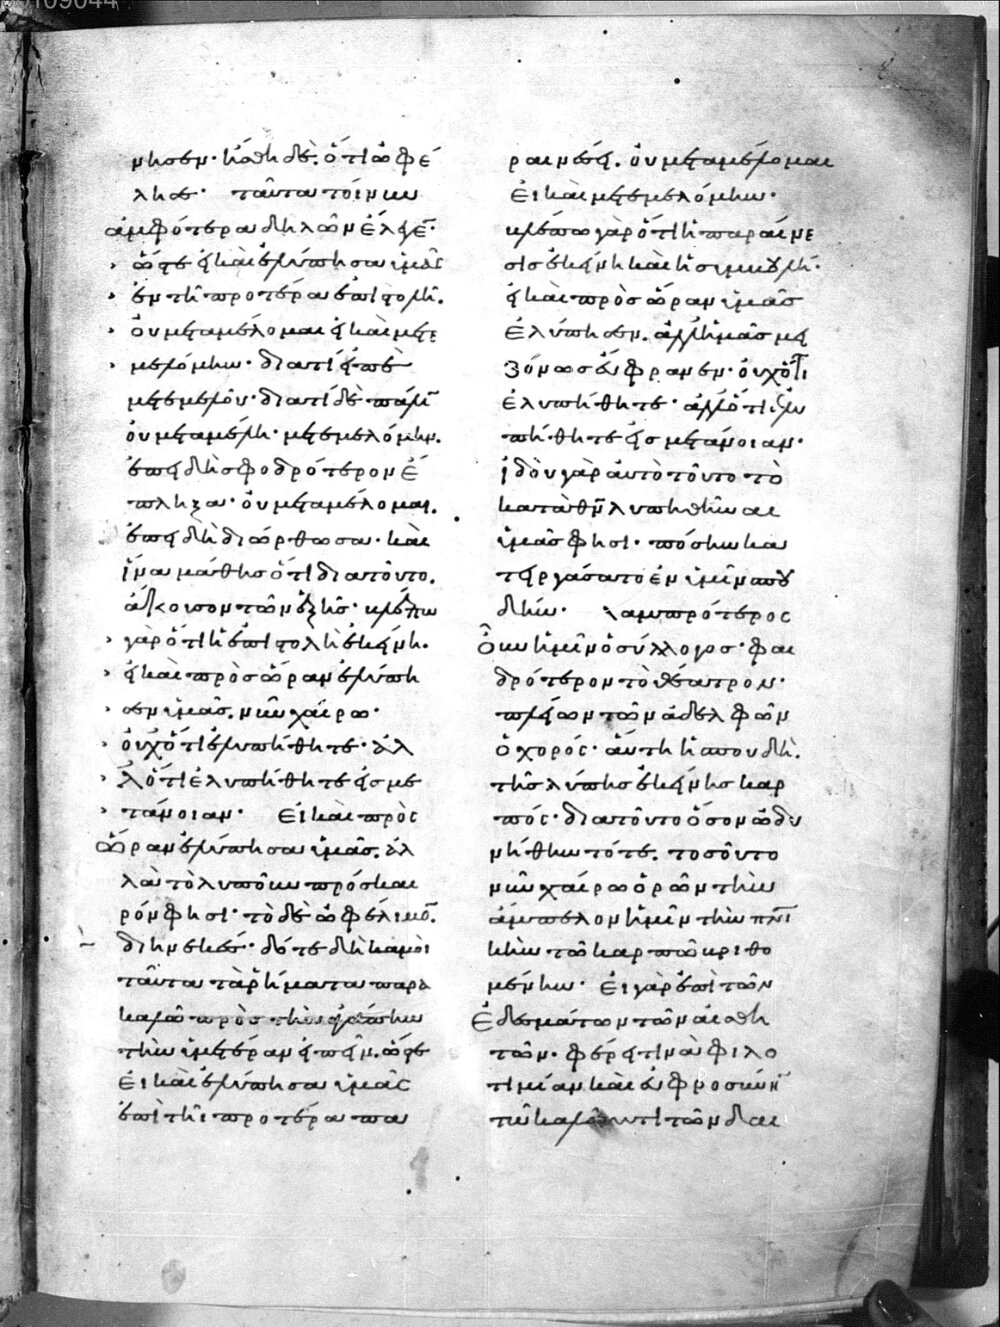 μησεν· ἤσθη δὲ ὅτι ὠφέ
λησε· ταῦτα τοίνυν
ἀμφότερα δηλῶν ἔλεγε·
ὥστε εἰ καὶ ἐλύπησα ὑμᾶς
ἐν τῇ προτέρα ἐπιστολῇ.
οὐ μεταμέλομαι εἰ καὶ μετε
μελόμην· διατί εἶπε
μετεμελόμην· διατί δὲ πάλιν
οὐ μεταμέλῃ· μετεμελόμην.
ἐπειδὴ σφοδρότερον ἐ
πληξα· οὐ μεταμέλομαι.
ἐπειδὴ διώρθωσα· καὶ
ἵνα μάθῃς ὅτι διατοῦτο.
ἄκουσον τῶν ἑξῆς· βλέπω
γὰρ ὅτι ἡ ἐπιστολὴ ἐκείνη.
εἰ καὶ πρὸς ὥραν ἐλύπη
σεν ὑμᾶς. νῦν χαίρω·
οὐχ ὅτι ἐλυπήθητε· ἀλ
λ' ὅτι ἐλυπήθητε εἰς με
τάνοιαν· Εἰ καὶ πρὸς
ὥραν ἐλύπησα ὑμᾶς. ἀλ
λὰ τὸ λυποῦν πρόσκαι
ρόν φησι· τὸ δὲ ὠφέλιμον.
διηνεκές· δότε δὴ κἀμοὶ
ταῦτα τὰ ῥήματα παρα
καλῶ πρὸς τὴν ἀγάπην
τὴν ὑμετέραν εἰπεῖν. ὥστε
εἰ καὶ ἐλύπησα ὑμᾶς
ἐπὶ τῇ προτέρα πα
ραινέσει. οὐ μεταμέλομαι
εἰ καὶ μετεμελόμην·
βλέπω γὰρ ὅτι ἡ παραίνε
σις ἐκείνη καὶ ἡ συμβουλή.
εἰ καὶ πρὸς ὥραν ὑμᾶς
ἐλύπησεν. ἀλλ' ἡμᾶς μει
ζόνως εὔφρανεν· οὐχ ὅτι
ἐλυπήθητε· ἀλλ' ὅτι ἐλυ
πήθητε εἰς μετάνοιαν·
ἰδοὺ γὰρ αὐτὸ τοῦτο τὸ
κατὰ θν λυπηθῆναι
ὑμᾶς φησι· πόσην κα
τειργάσατο ἐν ὑμῖν σπου
δήν· λαμπρότερος
οὖν ἡμῖν ὁ σύλλογος· φαι
δρότερον τὸ θέατρον·
πλείων τῶν ἀδελφῶν
ὁ χορός· αὕτη ἡ σπουδή.
τῆς λύπης ἐκείνης καρ
πός· διατοῦτο ὅσον ὠδυ
νήθην τότε. τοσοῦτο
νῦν χαίρω ὁρῶν τὴν
ἄμπελον ἡμῖν τὴν πνι
κὴν τῶ καρπῶ βριθο
μένην· Εἰ γὰρ ἐπὶ τῶν
ἐδεσμάτων τῶν αἰσθη
τῶν. φέρει τινὰ φιλο
τιμίαν καὶ εὐφροσύνην
τῶ καλοῦντι τῶν δαι